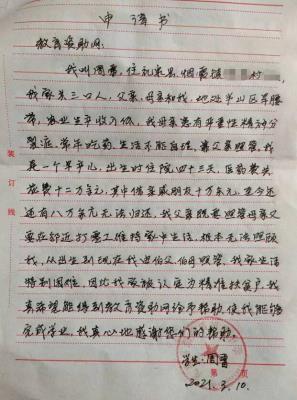 申请书
教育资助网：
我叫周雪，住礼泉县，烟霞镇 村
我家共三口人，父亲，母亲和我，地处半山区旱腰
带，农业生产收入低，我母亲患有严重性精神分
裂症，常年吃药，生活不能自理，靠父亲照管，
我是一个早产儿，出生时住院四十三天，医药费共
花费十二万余元，其中借亲戚朋友十万余元，至今还
还有八万余元无法归还，我父亲既要照管母亲又
要在邻近打零工维持家中生活，根本无法照顾
我，从出生到现在我由伯父伯母照管，我家生活
特别困难，因此我家被认定为精准扶贫户，我
真希望能得到教育资助网给予帮助，使我能够
完成学业，我真心地感谢您们的帮助。
学生：周雪
2021.3.10.
装订线
第 页